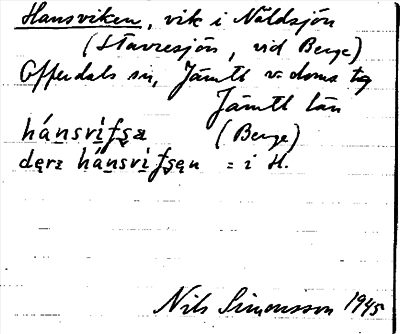 Hansviken, vik i Näldsjön
(Stavresjön, vid Berge)
Offerdals sn, Jämtl v. doms tg
Jämtl län
hánsvìfsa (Berge)
dęrɛ hánsvìfsęn = i H.
Nils Simonsson 1945